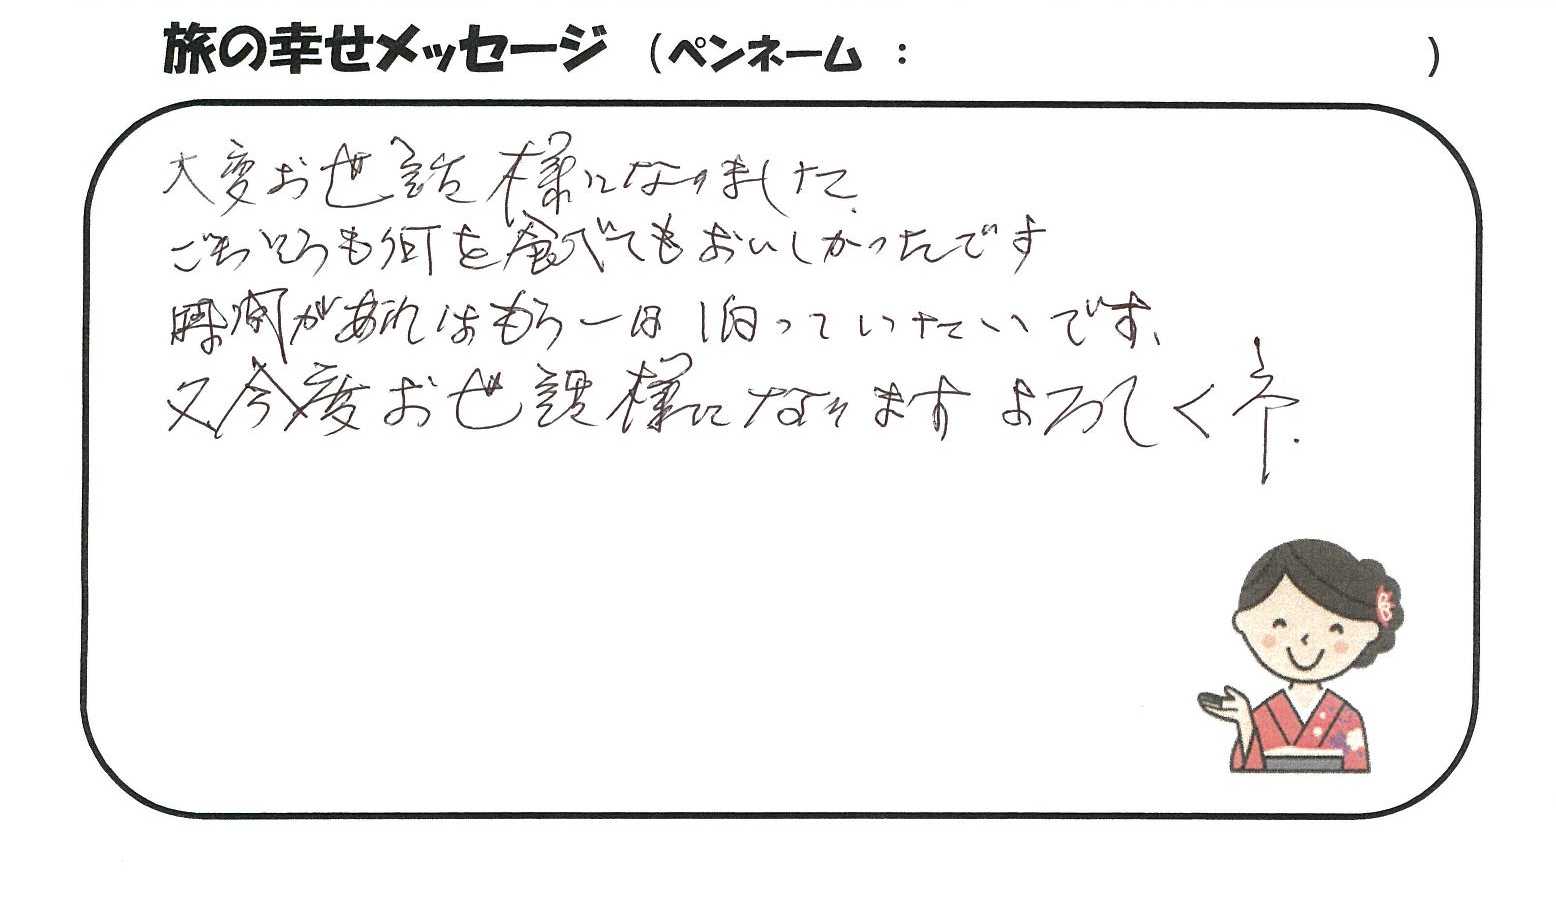 旅の幸せメッセージ (ペンネーム : )
大変お世話様になりました.
ごちそうも何を食べてもおいしかったです
時間があればもう一日泊っていたいです、
又今度お世話様になります よろしくネ.